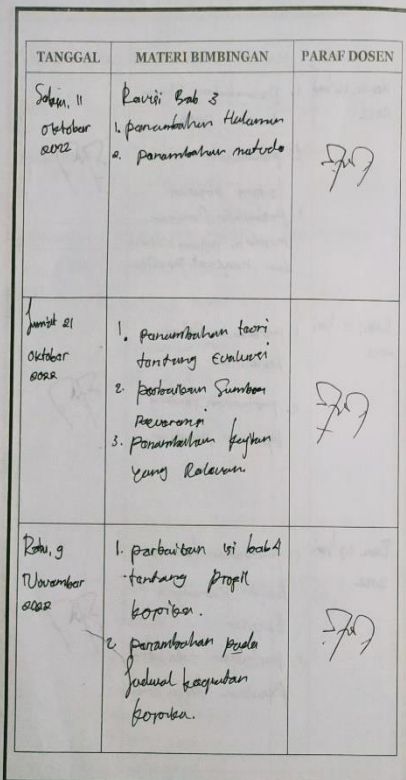 TANGGAL MATERI BIMBINGAN PARAF DOSEN
11
Oktober
2022
Revisi Bab 3
1. penambahan Halaman
2. penambahan metode
Jum'at 21
Oktober
2022
1. penambahan teori
tentang Evaluasi
2. perbaikan Sumber
Referensi
3. Penambahan kajian
yang Relevan.
Rabu, 9
November
2022
1. perbaikan isi bab 4
tentang profil
2. penambahan pada
Jadwal kegiatan